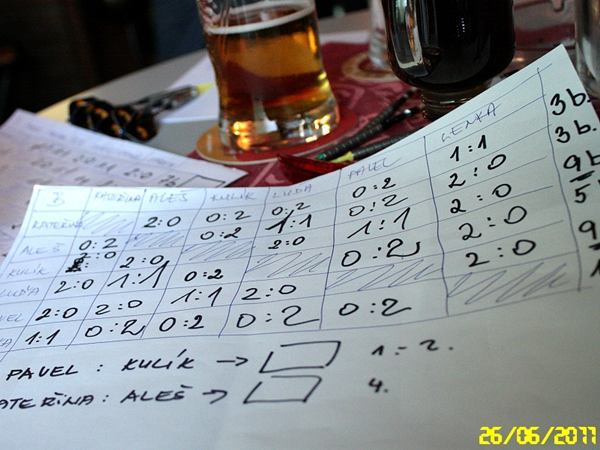 B KATEŘINA ALEŠ KULÍK LUĎA PAVEL LENKA
KATEŘINA 2:0 0:2 0:2 0:2 1:1 3b.
ALEŠ 0:2 0:2 1:1 0:2 2:0 3b.
KULÍK 2:0 2:0 2:0 1:1 2:0 9b
LUĎA 2:0 1:1 0:2 0:2 2:0 5b
VEL 2:0 2:0 1:1 2:0 2:0 9
KA 1:1 0:2 0:2 0:2 0:2 1
PAVEL : KULÍK → 1 - 2.
ATEŘINA : ALEŠ → 4.
26/06/2011